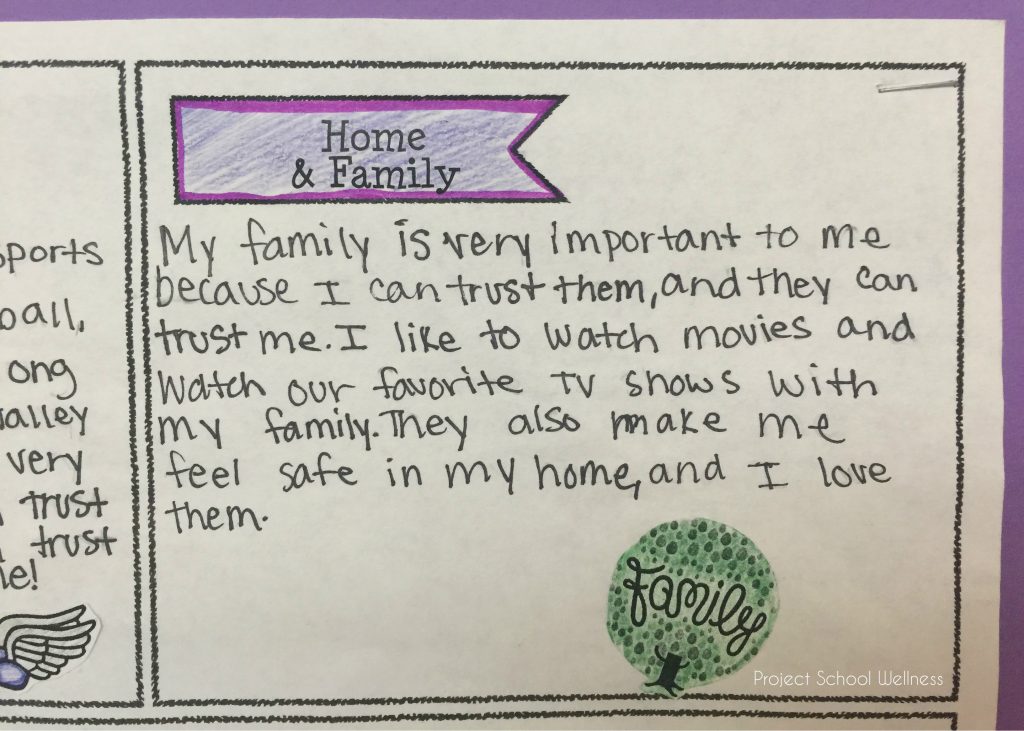 sports
ball,
ong
valley
very
trust
trust
me!
Home
& Family
My family is very important to me
because I can trust them, and they can
trust me. I like to watch movies and
watch our favorite TV shows with
my family. They also make me
feel safe in my home, and I love
them.
family
Project School Wellness